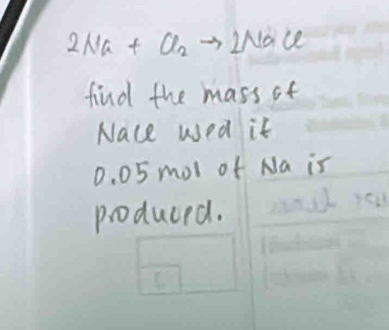 2Na + Cl₂ → 2NaCl
find the mass of
NaCl used if
0.05 mol of Na is
produced.